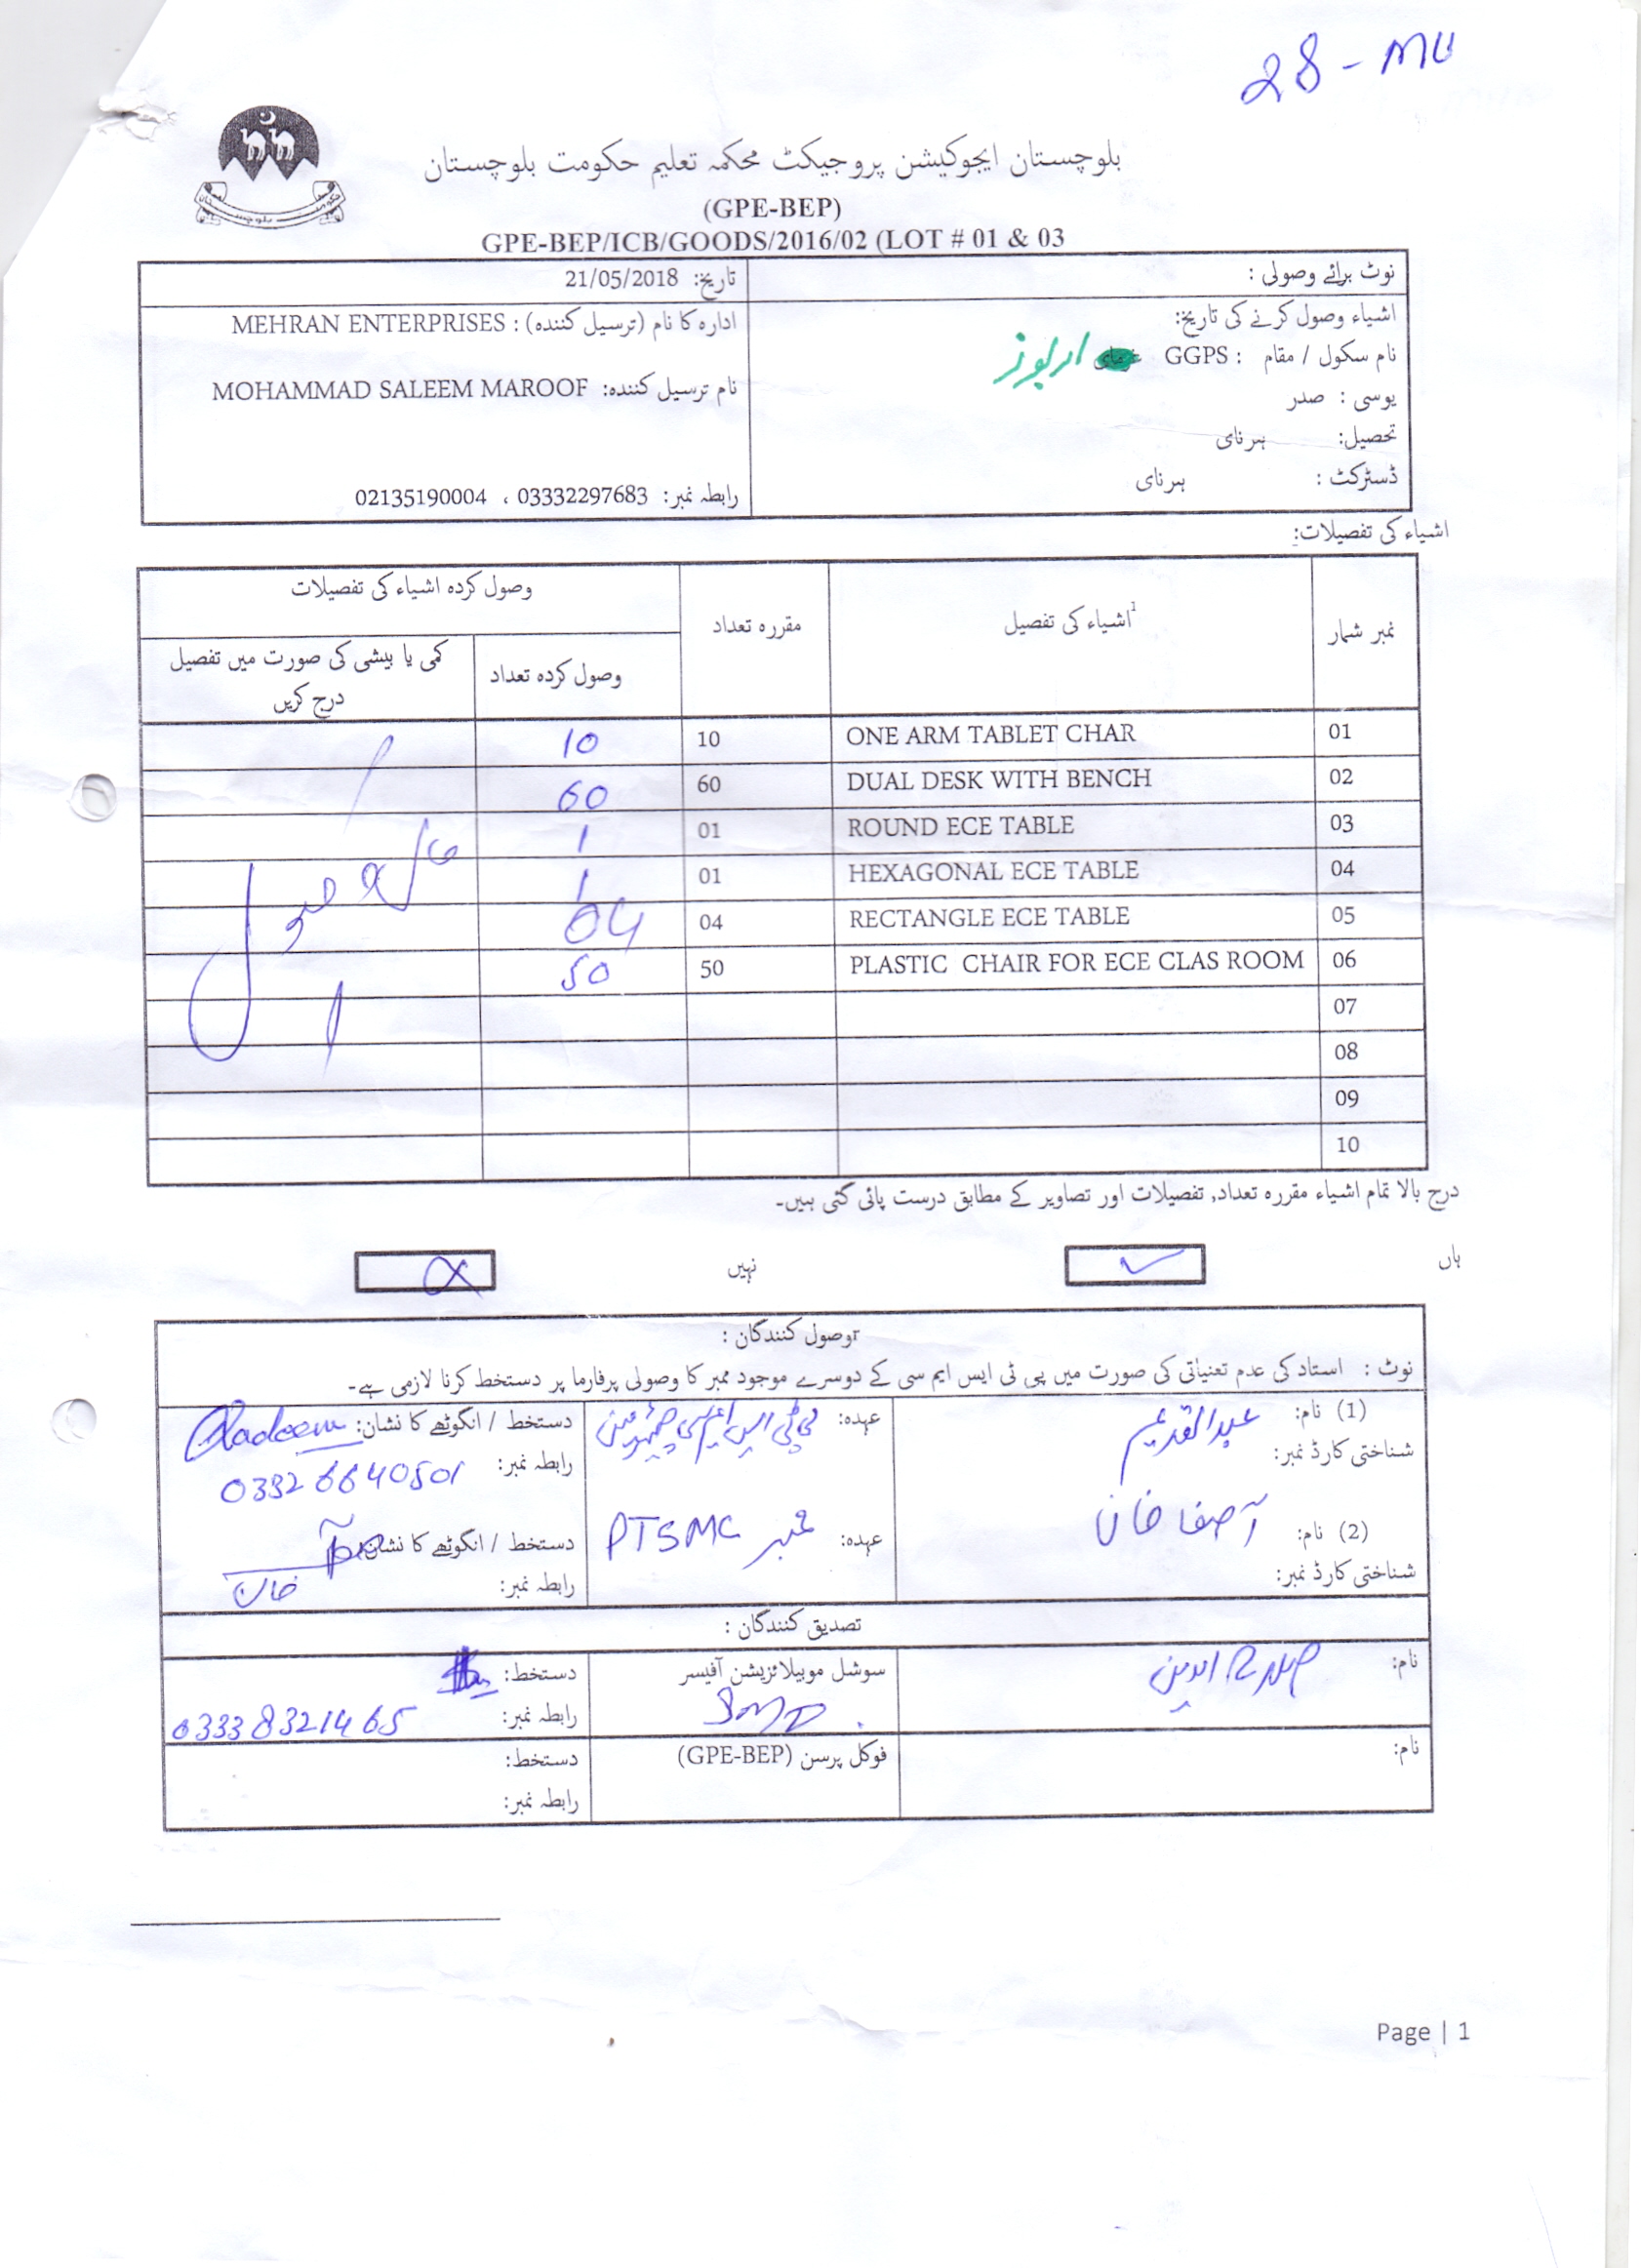 28 - MU
بلوچستان ایجوکیشن پروجیکٹ محکمہ تعلیم حکومت بلوچستان
(GPE-BEP)
GPE-BEP/ICB/GOODS/2016/02 (LOT # 01 & 03
نوٹ برائے وصولی :
تاریخ: 21/05/2018
اشیاء وصول کرنے کی تاریخ:
ادارہ کا نام (ترسیل کنندہ) : MEHRAN ENTERPRISES
نام سکول / مقام : GGPS
نام ترسیل کنندہ: MOHAMMAD SALEEM MAROOF
یوسی : صدر
تحصیل: ہرنای
ڈسٹرکٹ : ہرنای
رابطہ نمبر: 03332297683 ، 02135190004
اشیاء کی تفصیلات:
نمبر شمار اشیاء کی تفصیل1 مقررہ تعداد وصول کردہ اشیاء کی تفصیلات
وصول کردہ تعداد کمی یا بیشی کی صورت میں تفصیل
درج کریں
01 ONE ARM TABLET CHAR 10 10
02 DUAL DESK WITH BENCH 60 60
03 ROUND ECE TABLE 01 1
04 HEXAGONAL ECE TABLE 01 1
05 RECTANGLE ECE TABLE 04 04
06 PLASTIC CHAIR FOR ECE CLAS ROOM 50 50
07
08
09
10
درج بالا تمام اشیاء مقررہ تعداد, تفصیلات اور تصاویر کے مطابق درست پائی گئی ہیں۔
ہاں ✓ نہیں X
وصول کنندگان :
نوٹ : استاد کی عدم تعنیاتی کی صورت میں پی ٹی ایس ایم سی کے دوسرے موجود ممبر کا وصولی پرفارما پر دستخط کرنا لازمی ہے۔
(1) نام: عبدالقدیم عہدہ: پی ٹی ایس ایم سی چیئرمین دستخط / انگوٹھے کا نشان: Qadeem
شناختی کارڈ نمبر: رابطہ نمبر: 03326640501
(2) نام: آصفا خان عہدہ: ممبر PTSMC دستخط / انگوٹھے کا نشان:
شناختی کارڈ نمبر: رابطہ نمبر: خان
تصدیق کنندگان :
نام: سوشل موبیلائزیشن آفیسر دستخط:
SMO رابطہ نمبر: 03338321465
نام: فوکل پرسن (GPE-BEP) دستخط:
رابطہ نمبر:
Page | 1